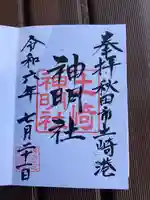 奉拝 秋田市土崎港
土崎
神明社
神明社
令和六年 七月二十日